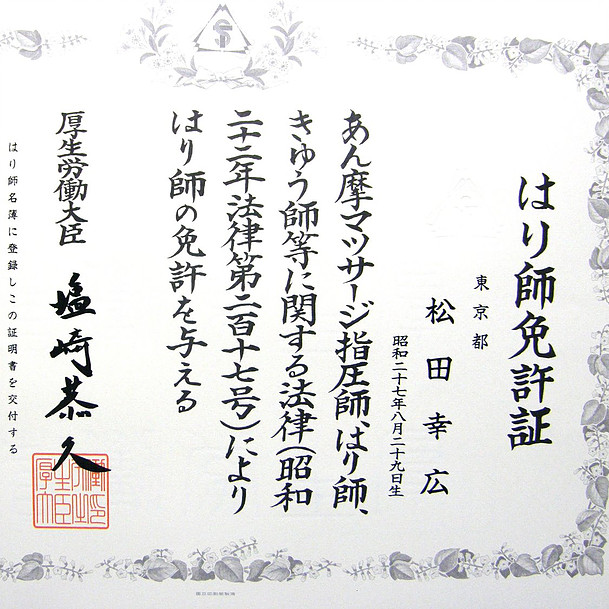 はり師免許証
東京都
松田幸広
昭和二十七年八月二十九日生
あん摩マッサージ指圧師、はり師、
きゅう師等に関する法律(昭和
二十二年法律第二百十七号)により
はり師の免許を与える
厚生労働大臣
塩崎恭久
はり師名簿に登録しこの証明書を交付する